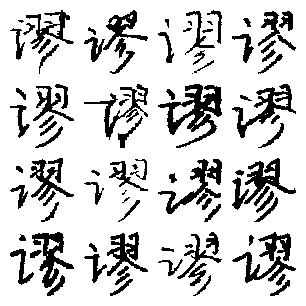 谬谬谬谬
谬谬谬谬
谬谬谬谬
谬谬谬谬